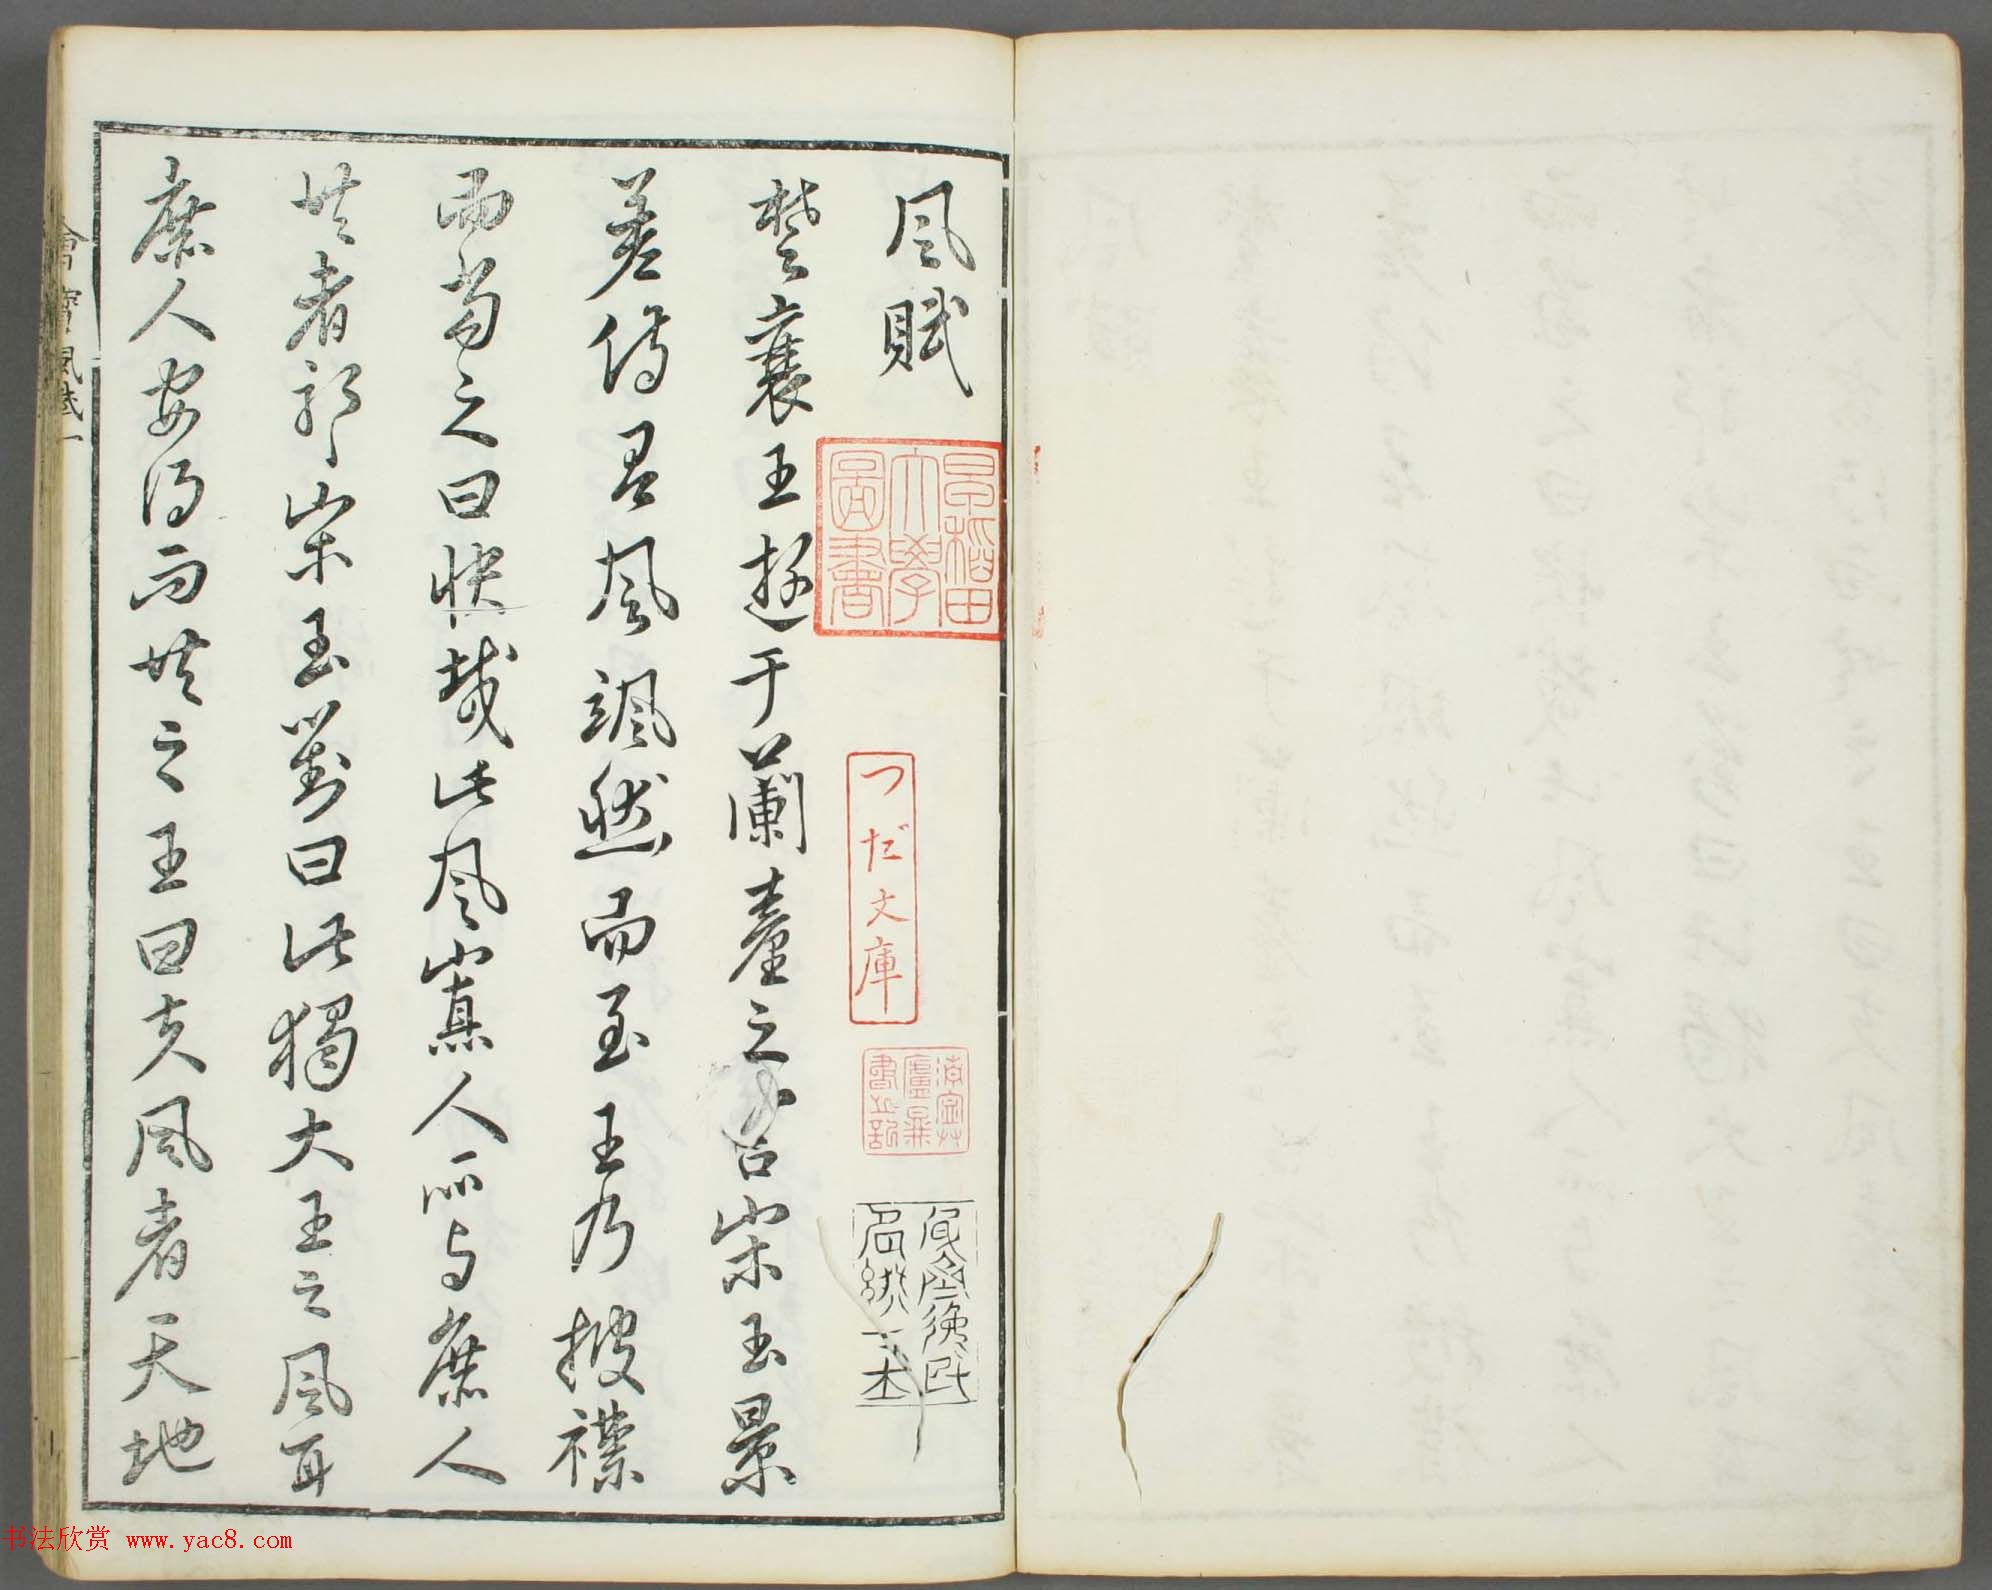 风賦
楚襄王遊于蘭臺之宮宋玉景
差侍有風颯然而至王乃披襟
而當之曰快哉此風寡人所与庶人
共者耶宋玉對曰此獨大王之風耳
庶人安得而共之王曰夫風者天地
早稻田
大學
圖書
つだ文庫
風賦 一
书法欣赏 www.yac8.com